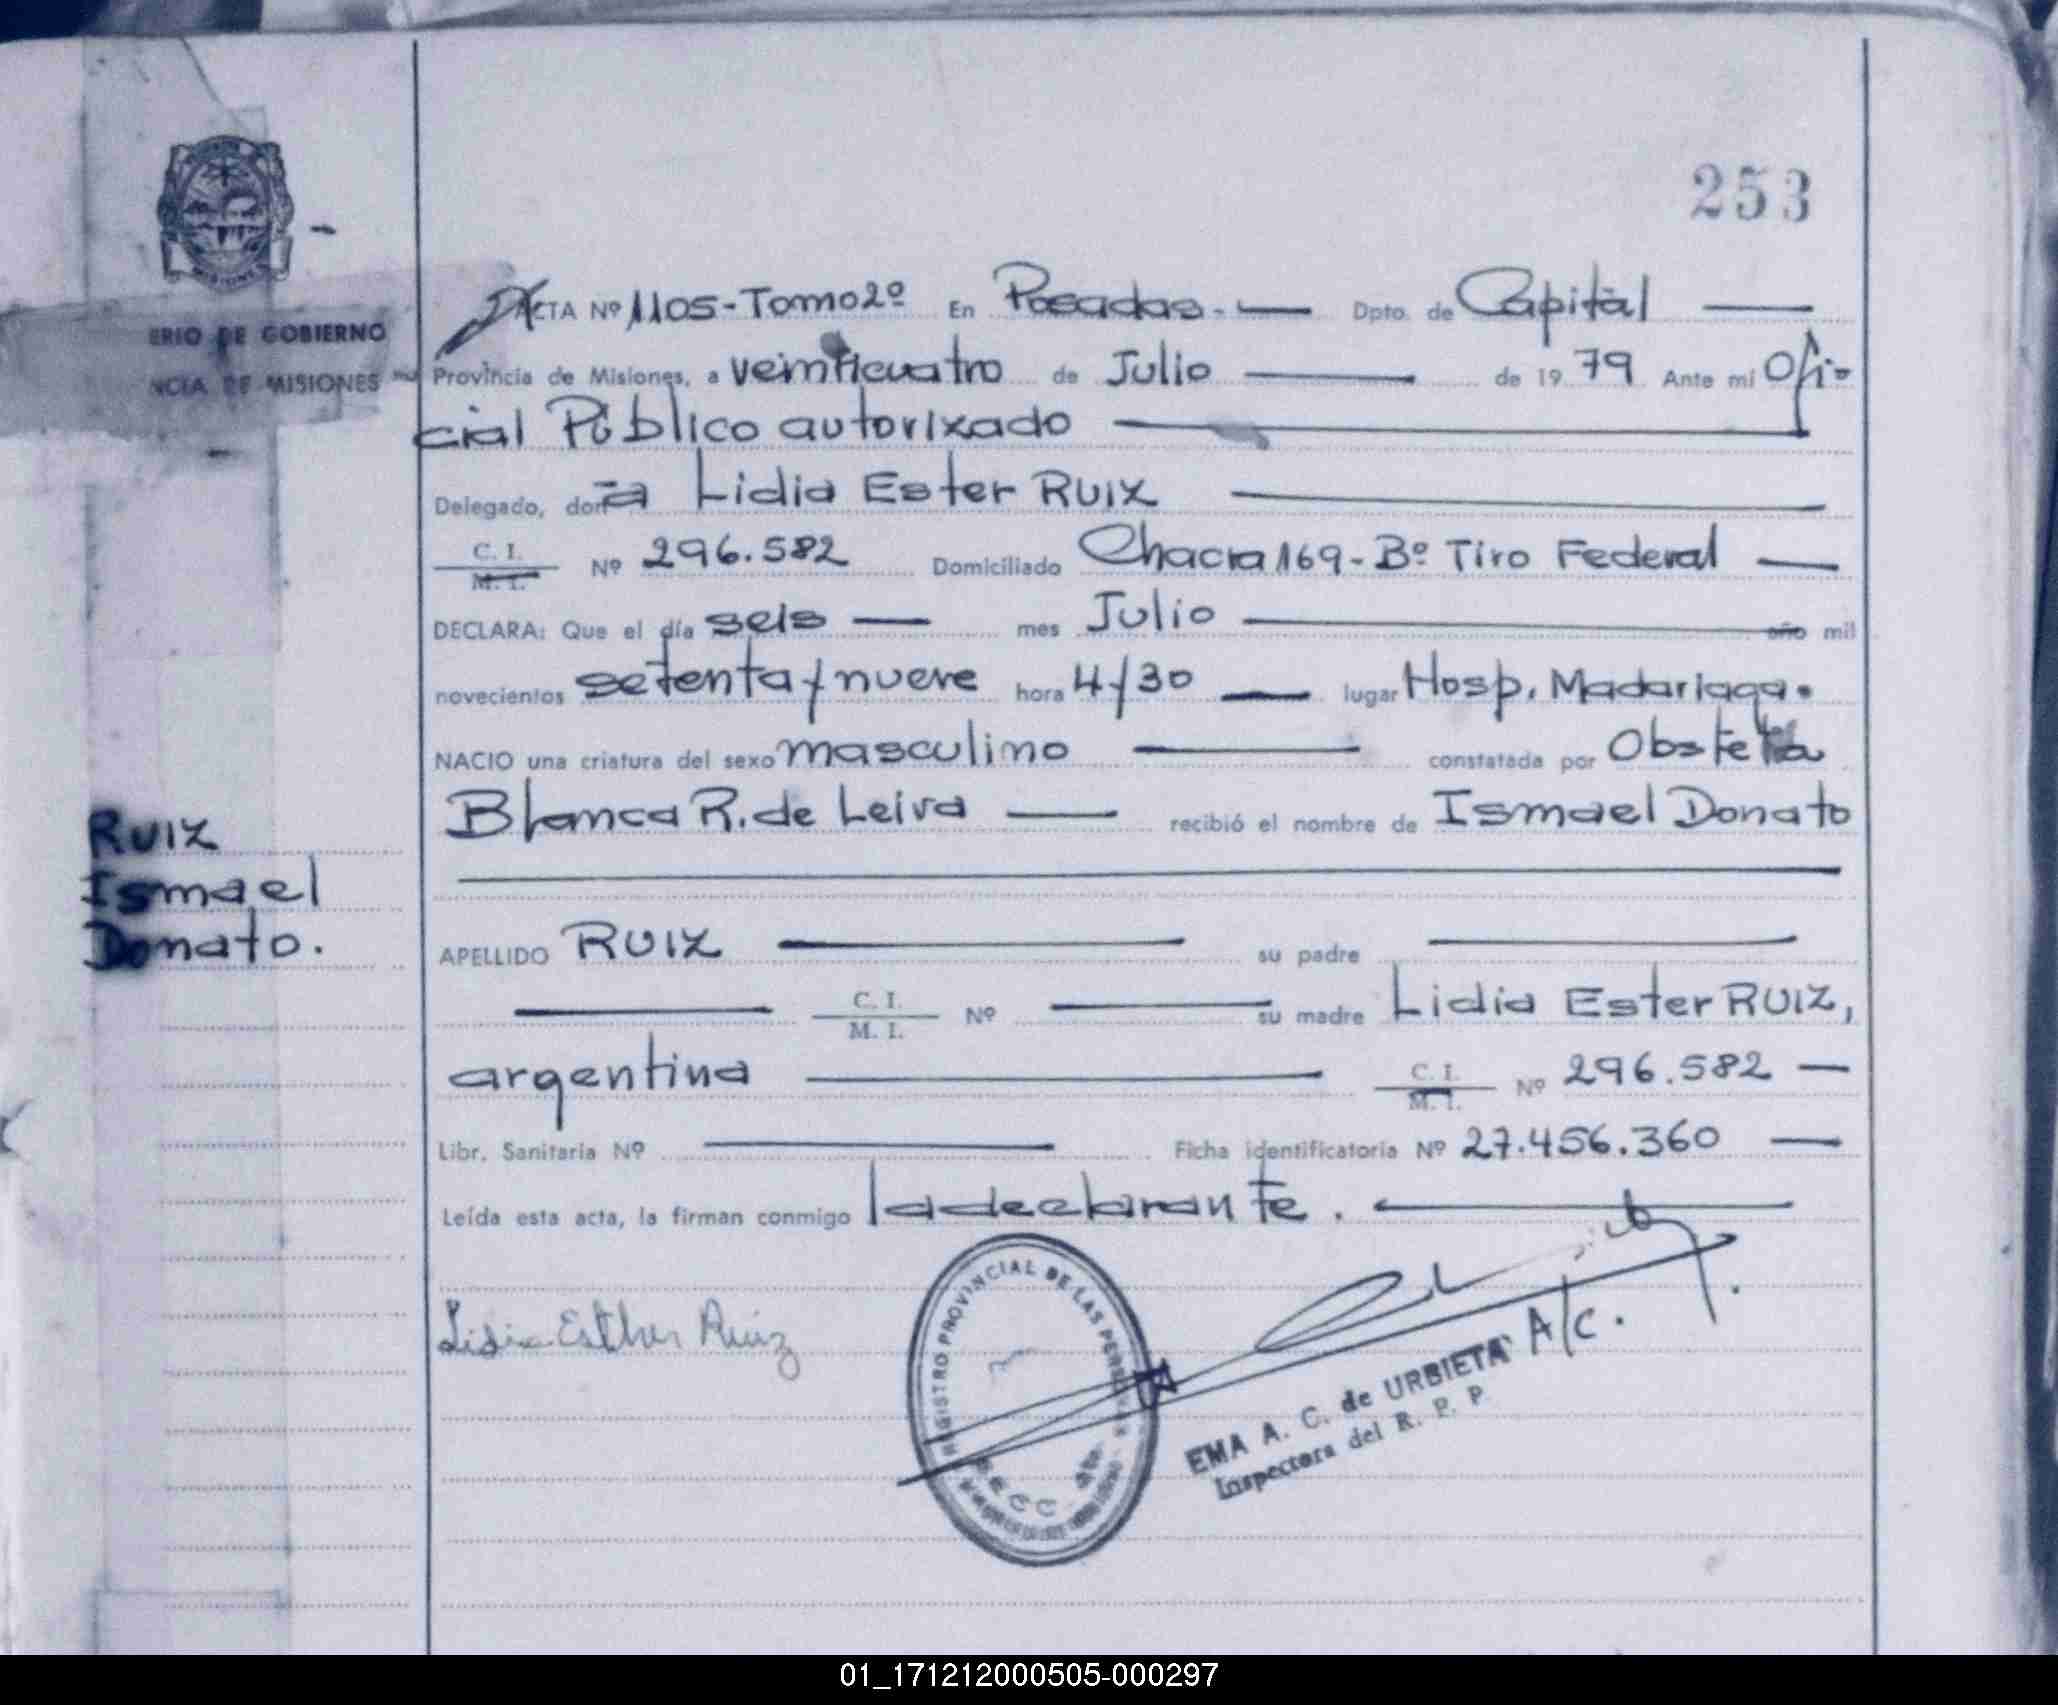 253
ACTA Nº 1105-Tomo 2º En Posadas.- Dpto. de Capital
ERIO DE GOBIERNO
NCIA DE MISIONES
Provincia de Misiones, a veinticuatro de Julio de 19 79 Ante mí Ofi-
cial Público autorizado
Delegado, doña Lidia Ester RUIZ
C. I.
M. I.
Nº 296.582 Domiciliado Chacra 169-Bº Tiro Federal
DECLARA: Que el día seis mes Julio año mil
novecientos setenta y nueve hora 4/30 lugar Hosp. Madariaga.
NACIO una criatura del sexo masculino constatada por Obsteta
Blanca R. de Leiva recibió el nombre de Ismael Donato
Ruiz
Ismael
Donato.
APELLIDO RUIZ su padre
C. I.
M. I.
Nº su madre Lidia Ester RUIZ,
argentina C. I.
M. I.
Nº 296.582
Libr. Sanitaria Nº Ficha identificatoria Nº 27.456.360
Leída esta acta, la firman conmigo la declarante.
Lidia Esther Ruiz
REGISTRO PROVINCIAL DE LAS PERSONAS
A/c.
EMA A. C. de URBIETA
Inspectora del R. P. P.
01_171212000505-000297